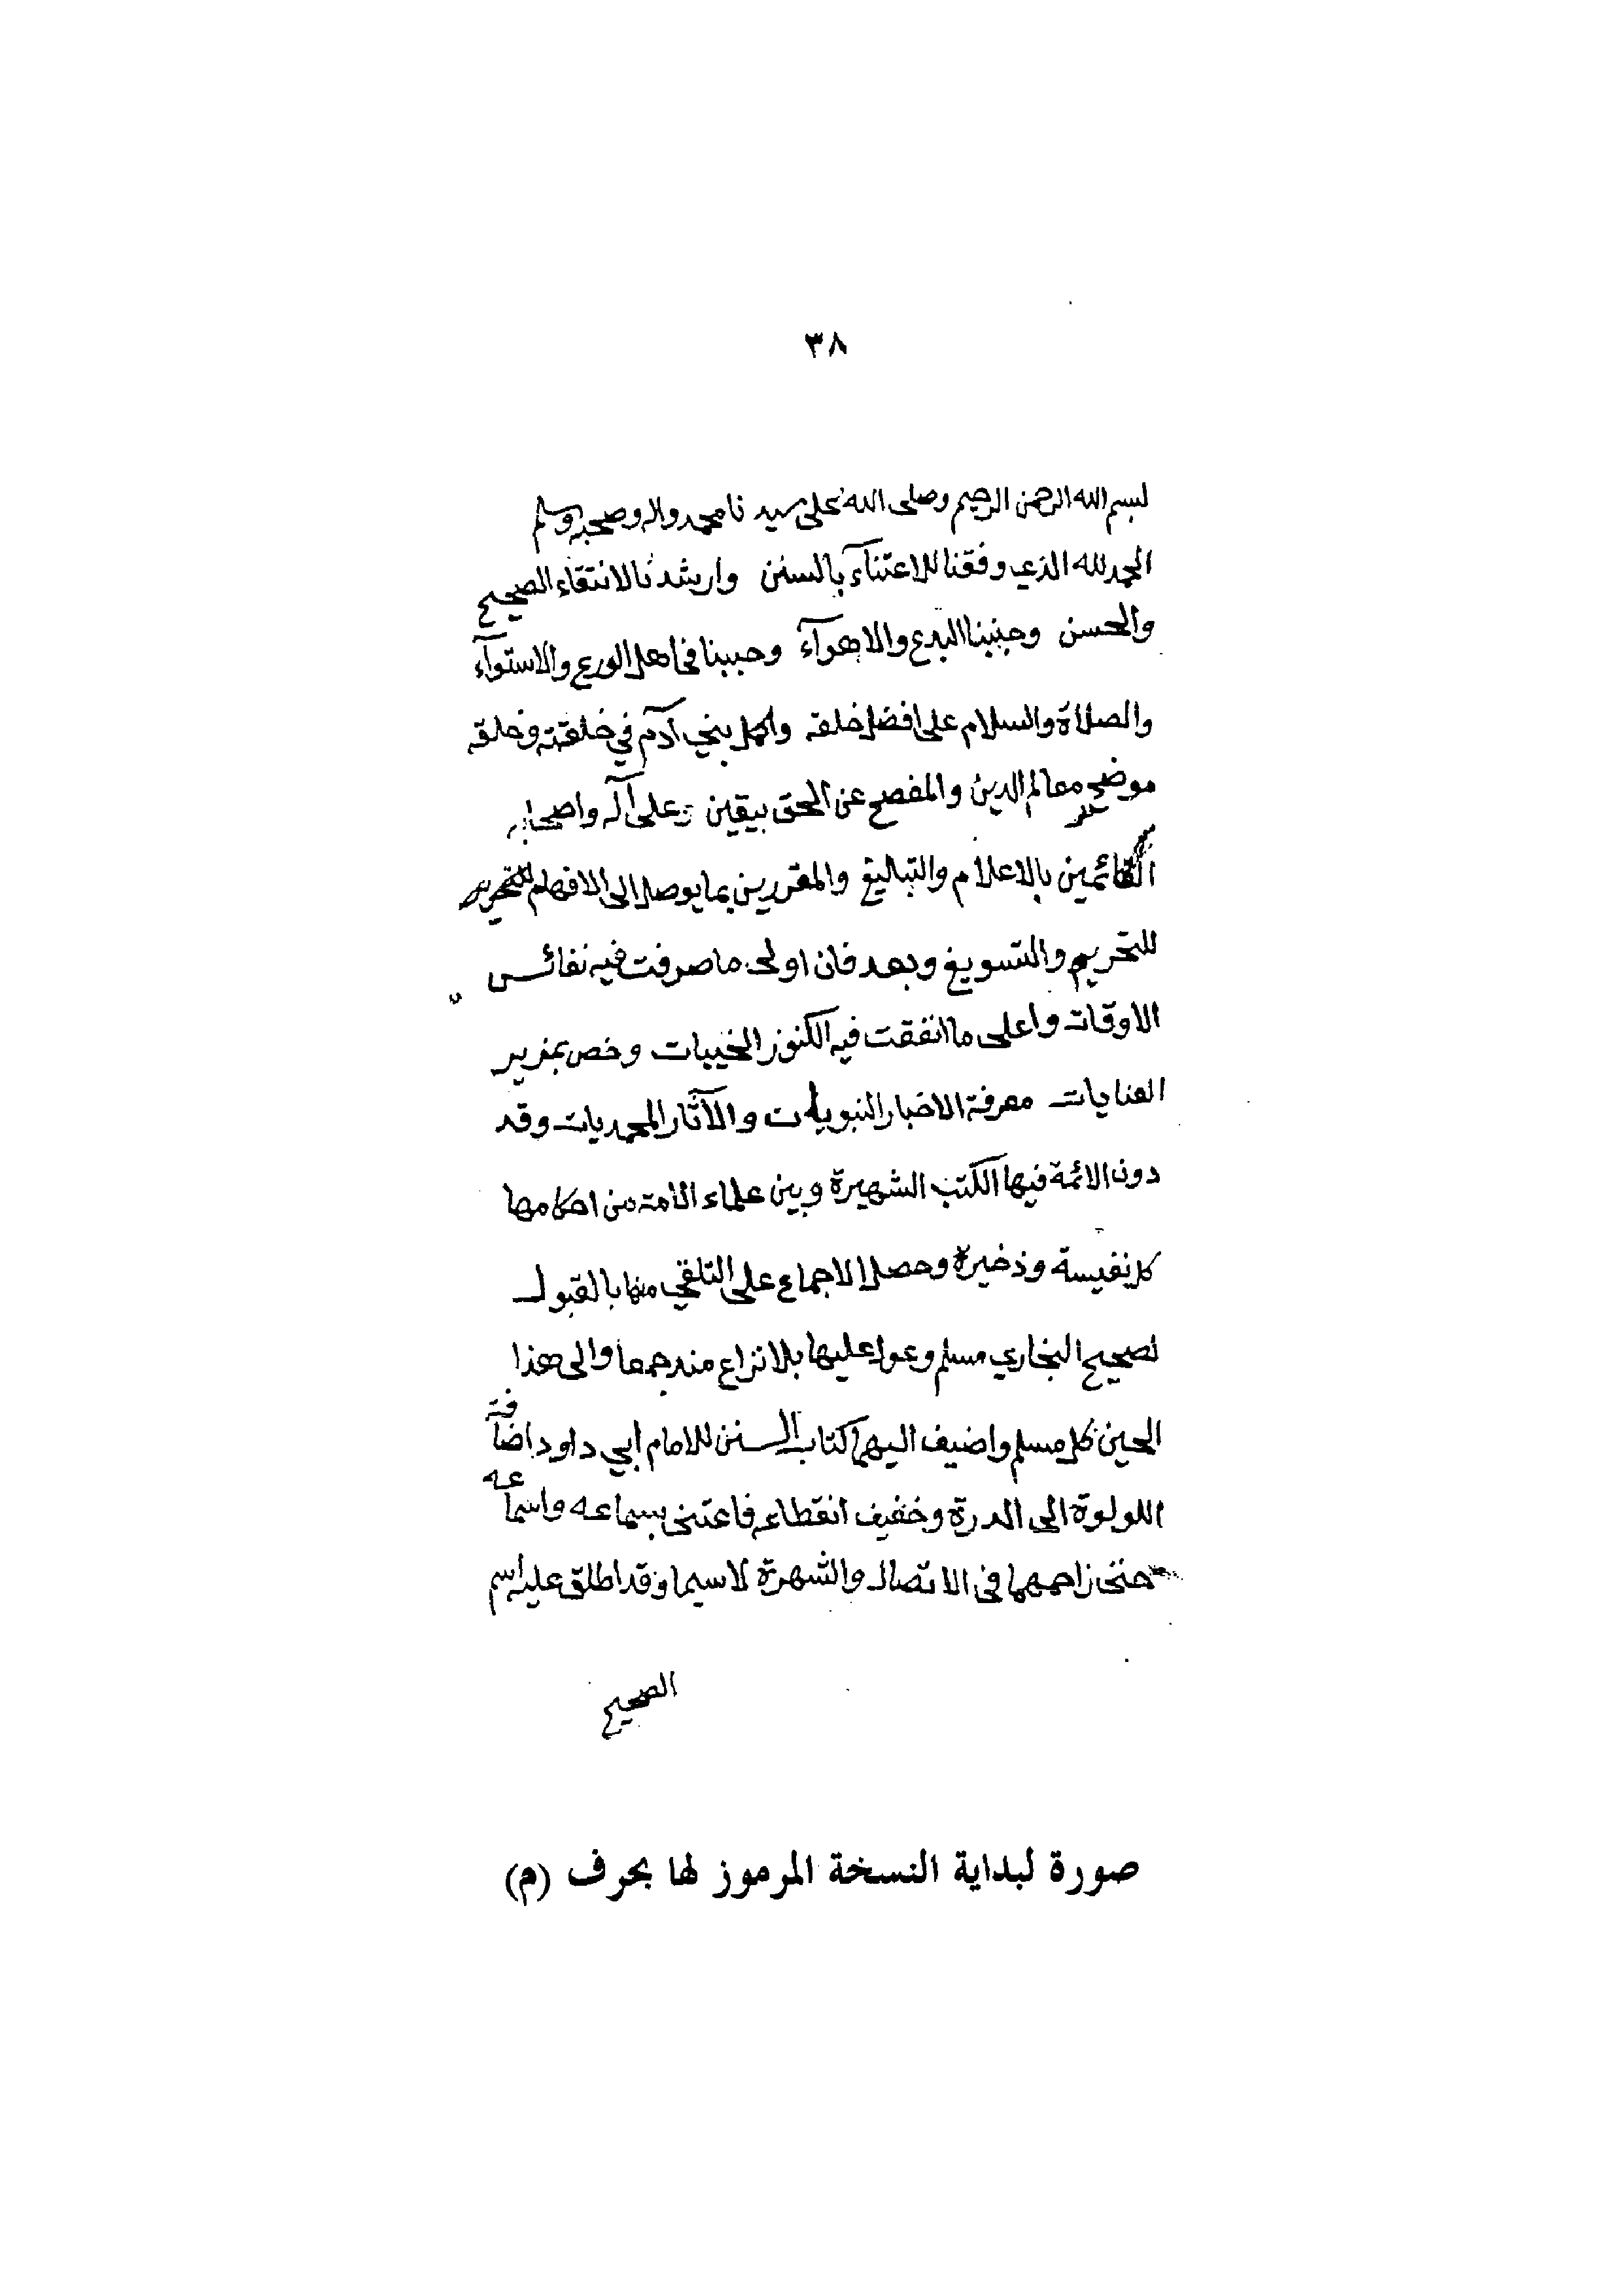 ٣٨
لبسم الله الرحمن الرحيم وصلى الله على سيد نا محمد واله وصحبه وسلم
الحمد لله الذي وفقنا للاعتنآء بالسنن وارشد نا لانتقاء الصحيح
والحسن وجنبنا البدع والاهوآء وحببنا في اهل الورع والاستوآء
والصلاة والسلام على افضل خلقه واكمل بني آدم في خلقته وخلقه
موضح معالم الدين والمفصح عن الحق بيقين وعلى آله واصحابه
القائمين بالاعلام والتبليغ والمقررين بما يوصل الى الافهام
للتحريم والتسويغ وبعد فان اولى ما صرفت فيه نفائس
الاوقات واعلى ما انفقت فيه الكنوز الخبيات وخص بمزيد
العنايات معرفة الاخبار النبويات والآثار المحمديات وقد
دون الائمة فيها الكتب الشهيرة وبين علماء الامة من احكامها
كل نفيسة وذخيرة وحصل الاجماع على التلقي منها بالقبول
لصحيح البخاري مسلم وعول عليها بلا نزاع منذ جمعا والى هذا
الحين كل مسلم واضيف اليهما كتاب السنن للامام أبي داود اضافة
اللولوة الى الدرة وخفيف انقطاعه فاعتنى بسماعه واسماعه
حتى زاحمهما في الاتصال والشهرة لا سيما وقد اطلق عليه اسم
الصحيح
صورة لبداية النسخة المرموز لها بحرف (م)